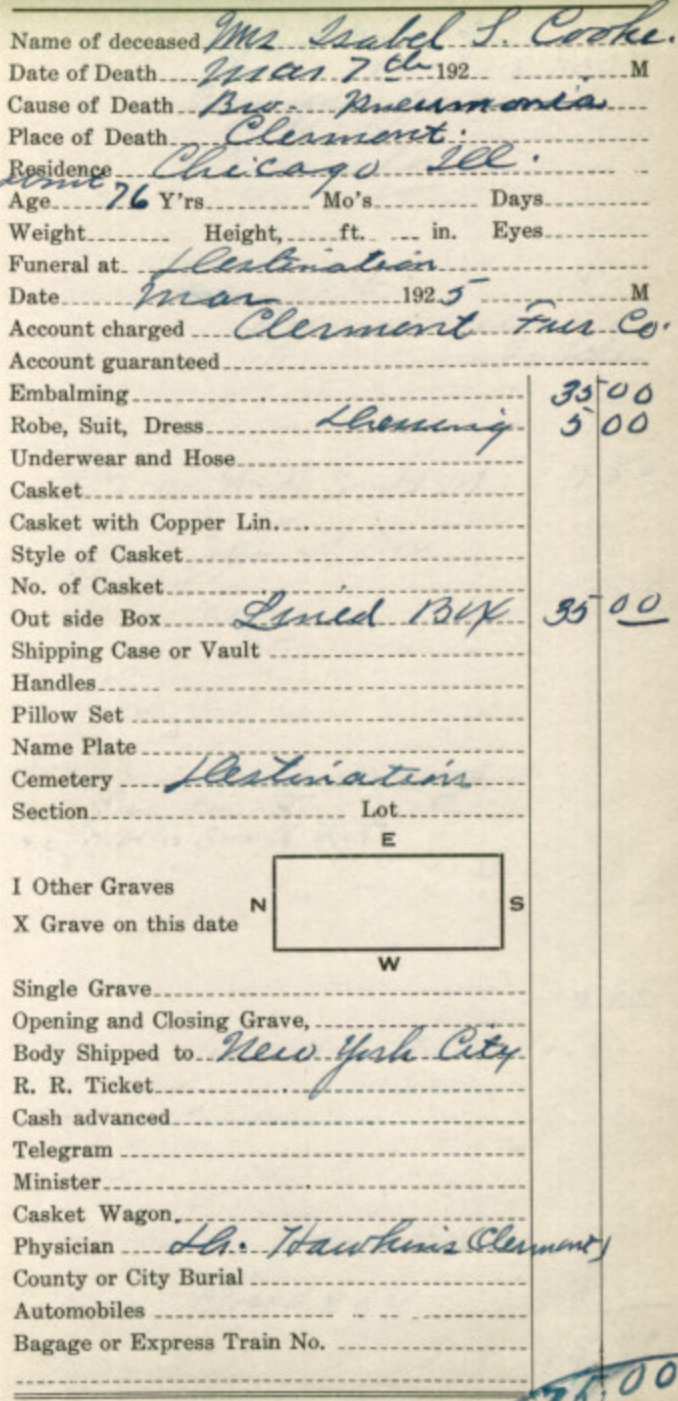 Name of deceased Mrs Isabel S. Cooke.
Date of Death Mar 7th 192 M
Cause of Death Bro. Pneumonia
Place of Death Clermont.
Residence Chicago Ill.
Age 76 Y'rs Mo's Days
Weight Height, ft. in. Eyes
Funeral at Destination
Date Mar 1925 M
Account charged Clermont Fur Co.
Account guaranteed
Embalming 35 00
Robe, Suit, Dress Dressing 5 00
Underwear and Hose
Casket
Casket with Copper Lin.
Style of Casket
No. of Casket
Out side Box Lined Box 35 00
Shipping Case or Vault
Handles
Pillow Set
Name Plate
Cemetery Destination
Section Lot
E
I Other Graves
N S
X Grave on this date
W
Single Grave
Opening and Closing Grave,
Body Shipped to New York City
R. R. Ticket
Cash advanced
Telegram
Minister
Casket Wagon
Physician Dr. Hawkins (Clermont)
County or City Burial
Automobiles
Bagage or Express Train No.
75.00